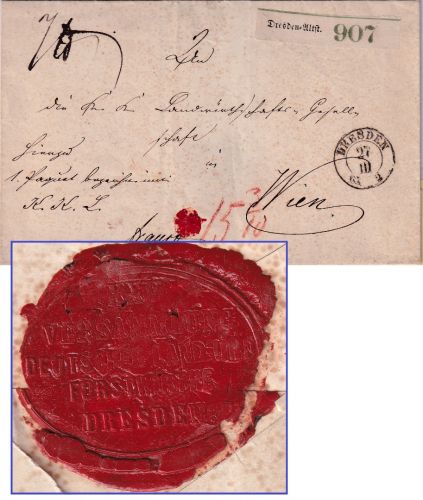 Dresden-Altst. 907
An
die K. K. Landwirthschafts-Gesell-
schaft
Hierzu
in
1. Paquet bezeichn. mit
K. K. L.
Wien.
DRESDEN
27
III
franco
15
VERSAMMLUNG
DEUTSCHER LAND- UND
FORSTWIRTHE
DRESDEN